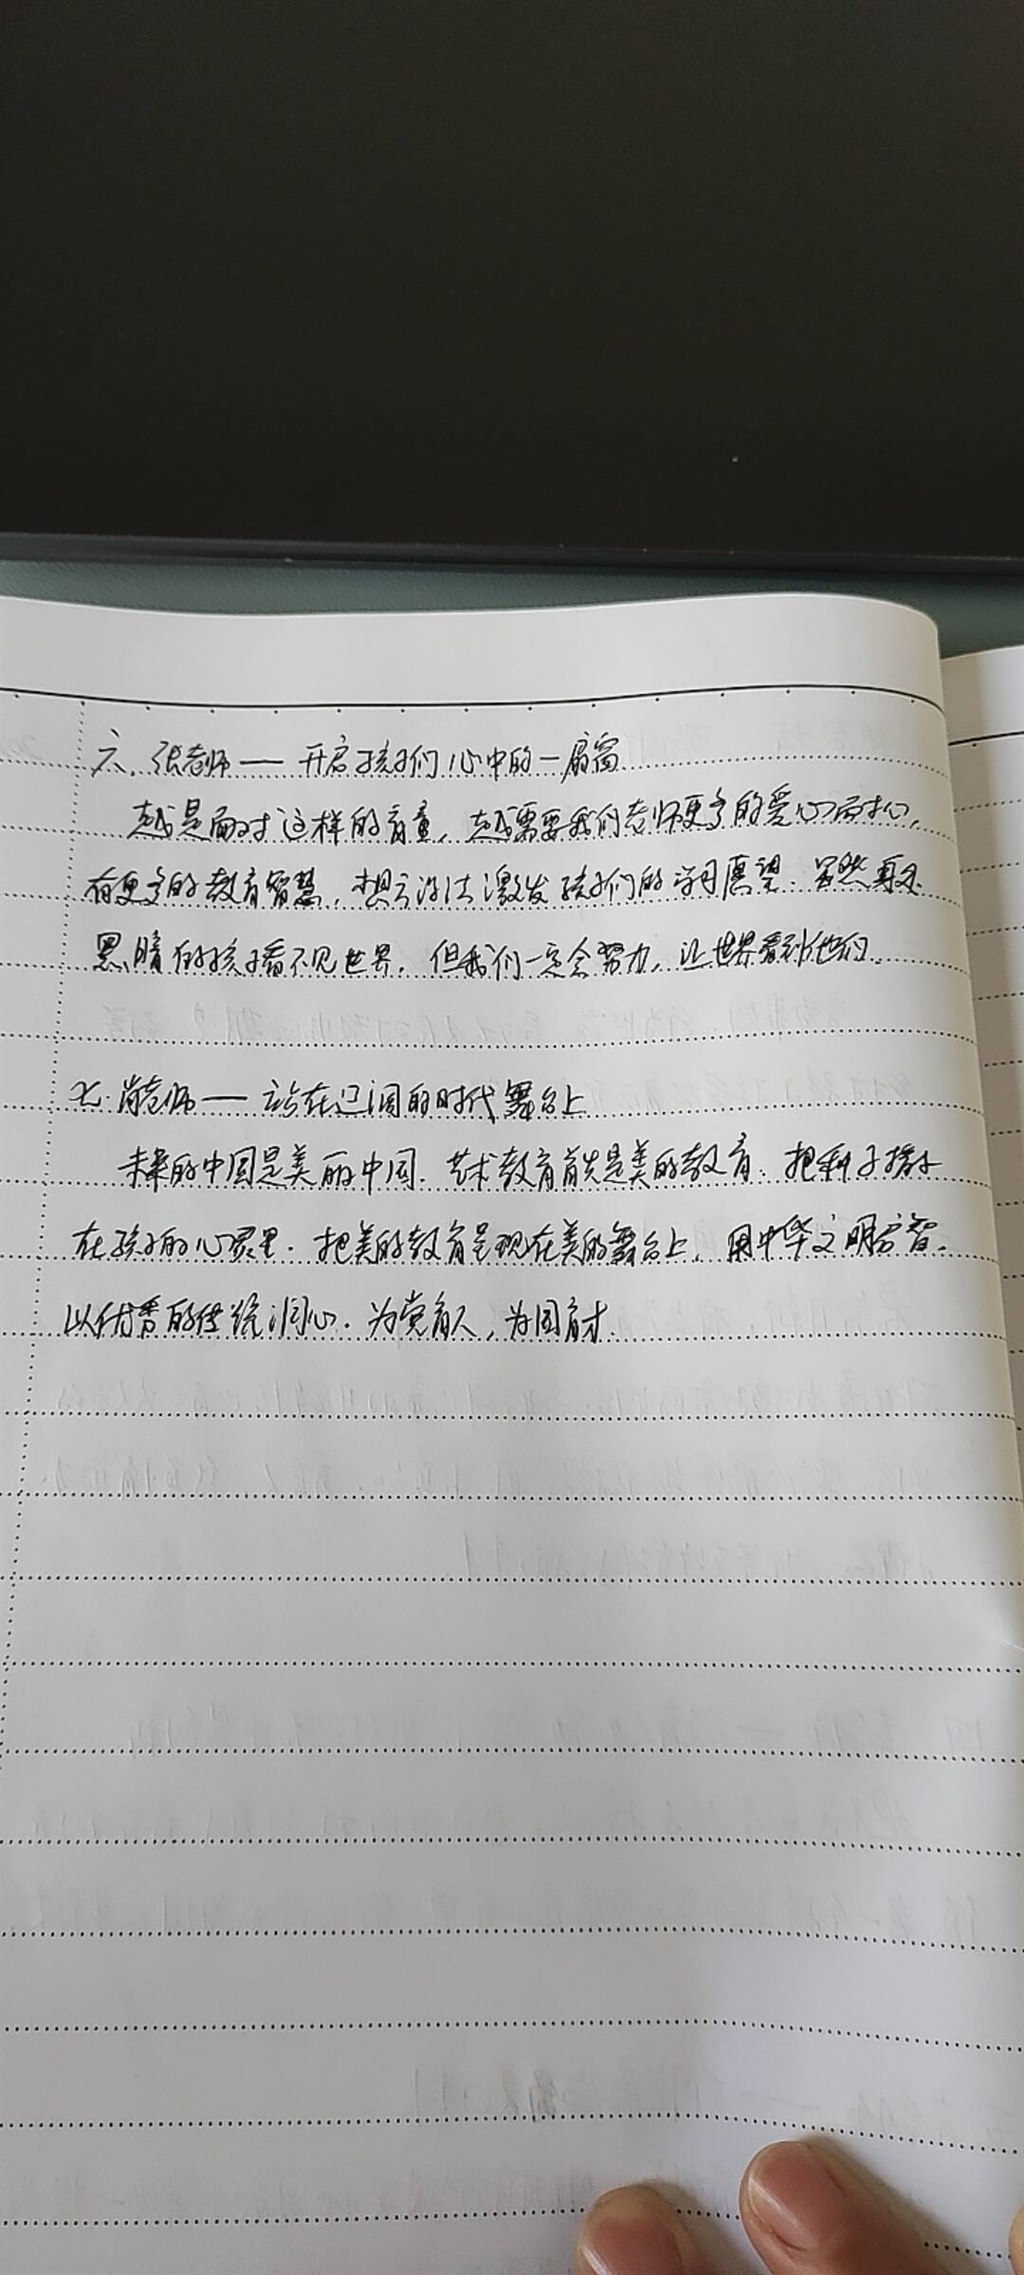 六、张老师——开启孩子们心中的一扇窗
越是面对这样的盲童，越需要我们老师更多的爱心耐心，
有更多的教育智慧，想方设法激发孩子们的学习愿望。虽然再
黑暗的孩子看不见世界，但我们一定会努力，让世界看到他们。
七、肖老师——站在辽阔的时代舞台上
未来的中国是美丽中国，艺术教育首先是美的教育，把种子播
在孩子的心灵里，把美的教育呈现在美的舞台上，用中华文明启智，
以优秀的传统润心，为党育人，为国育才。